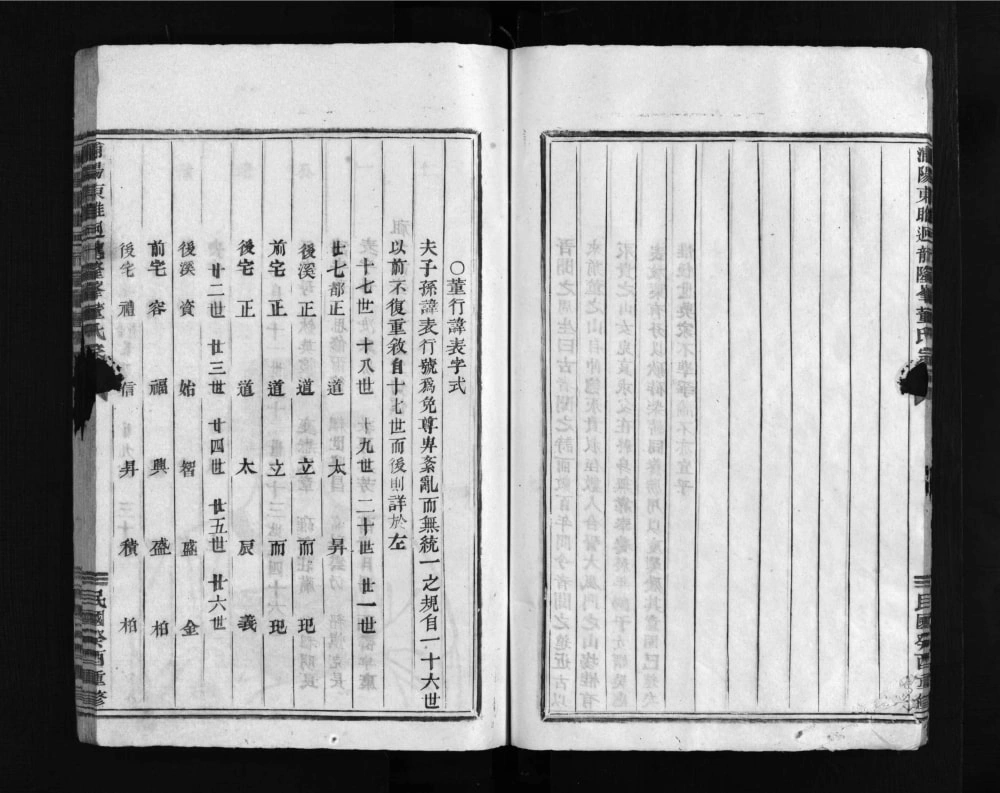 ○董行諱表字式
夫子孫諱表行號爲免尊卑紊亂而無統一之規自一十六世
以前不復重敘自十七世而後則詳於左
十七世 十八世 十九世 二十世 廿一世
廿七都正 道 太 昇
後溪正 道 立 而 玘
前宅正 道 立 而 玘
後宅 正 道 太 辰 義
廿二世 廿三世 廿四世 廿五世 廿六世
後溪 資 始 智 盛 金
前宅 容 福 興 盛 柏
後宅 禮 信 昇 積 柏
東 迴龍隆峯董氏宗
民國癸酉重修
東 迴龍隆峯董氏宗
民國癸酉重修